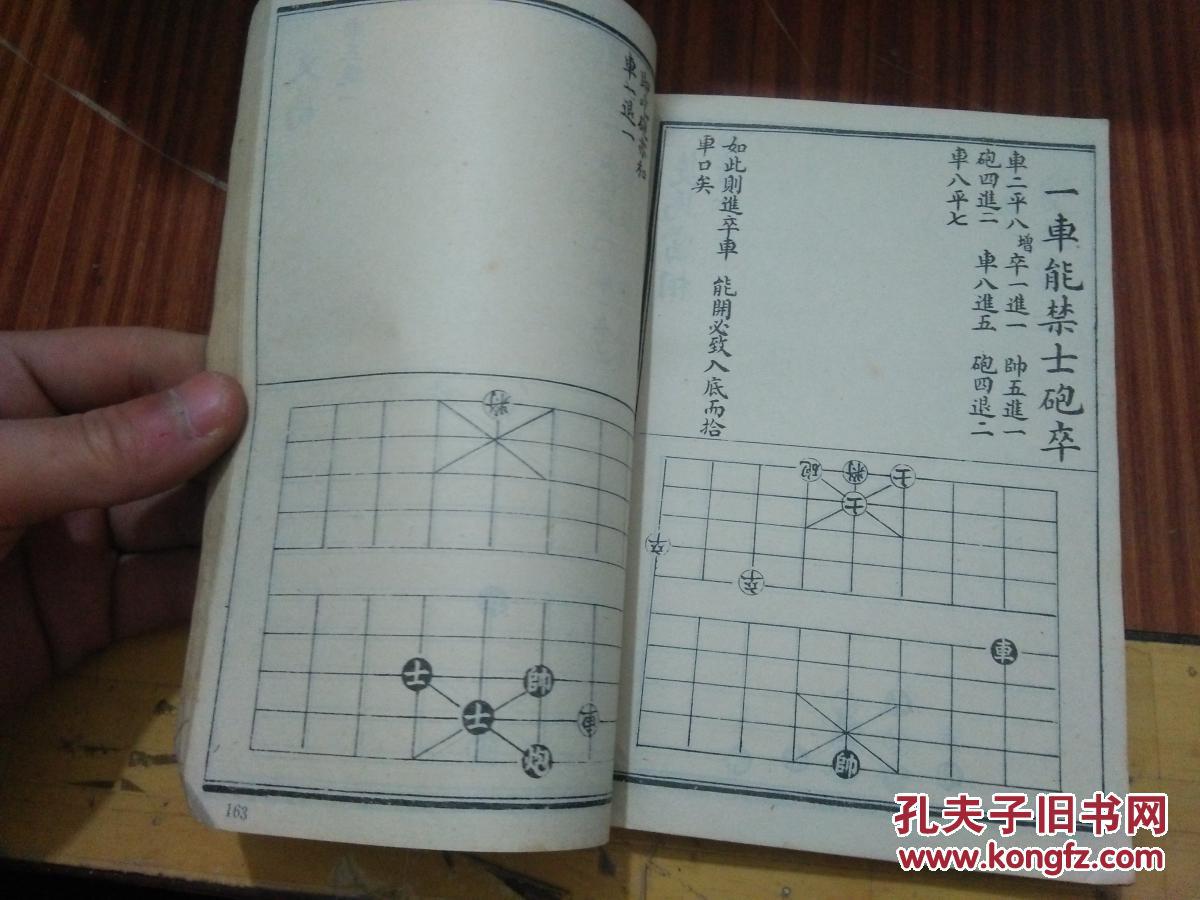 一車能禁士砲卒
車二平八增卒一進一 帥五進一
砲四進二 車八進五 砲四退二
車八平七
如此則進卒車 能開必致入底而拾
車口矣
車一退一
砲
將
士
士
卒
卒
車
帥
將
士
帥
士
車
炮
163
孔夫子旧书网
www.kongfz.com